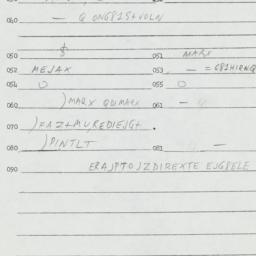 040 — Q ONG815+VOLN
$
050 051 MARX
052 MEJAX 053 — = 681HIRNQ
054 O 055 O
060 )MARX QUMARX 061 —
070 )FAZ+MU,REDIEJG+.
080 )PINTLT 081 —
090 ERA)PTO)ZDIREKTE EJGPELE